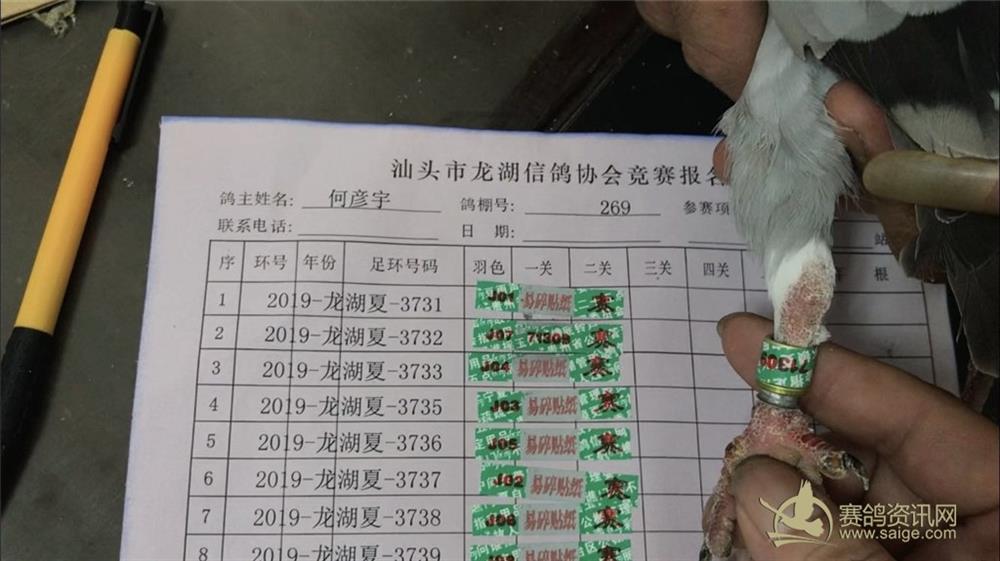 汕头市龙湖信鸽协会竞赛报名
鸽主姓名: 何彦宇 鸽棚号: 269 参赛项
联系电话: 日 期: 站
序 环号 年份 足环号码 羽色 一关 二关 三关 四关 根
1 2019-龙湖夏-3731 J01 易碎贴纸 赛
2 2019-龙湖夏-3732 J07 71309 赛
3 2019-龙湖夏-3733 J04 易碎贴纸 赛
4 2019-龙湖夏-3735 J03 易碎贴纸 赛
5 2019-龙湖夏-3736 J05 易碎贴纸 赛
6 2019-龙湖夏-3737 J02 易碎贴纸 赛
7 2019-龙湖夏-3738 J06 易碎贴纸 赛
8 2019-龙湖夏-3739
7130
赛鸽资讯网
www.saige.com